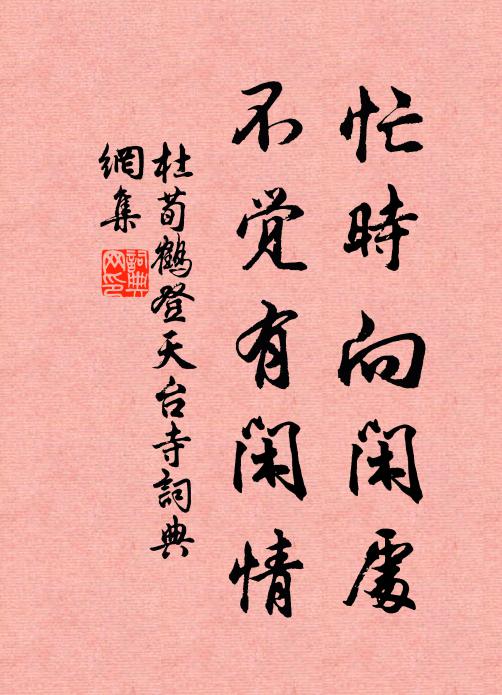 忙時向閑處
不觉有閑情
杜荀鶴登天台寺詞典
網集
詞典
网印